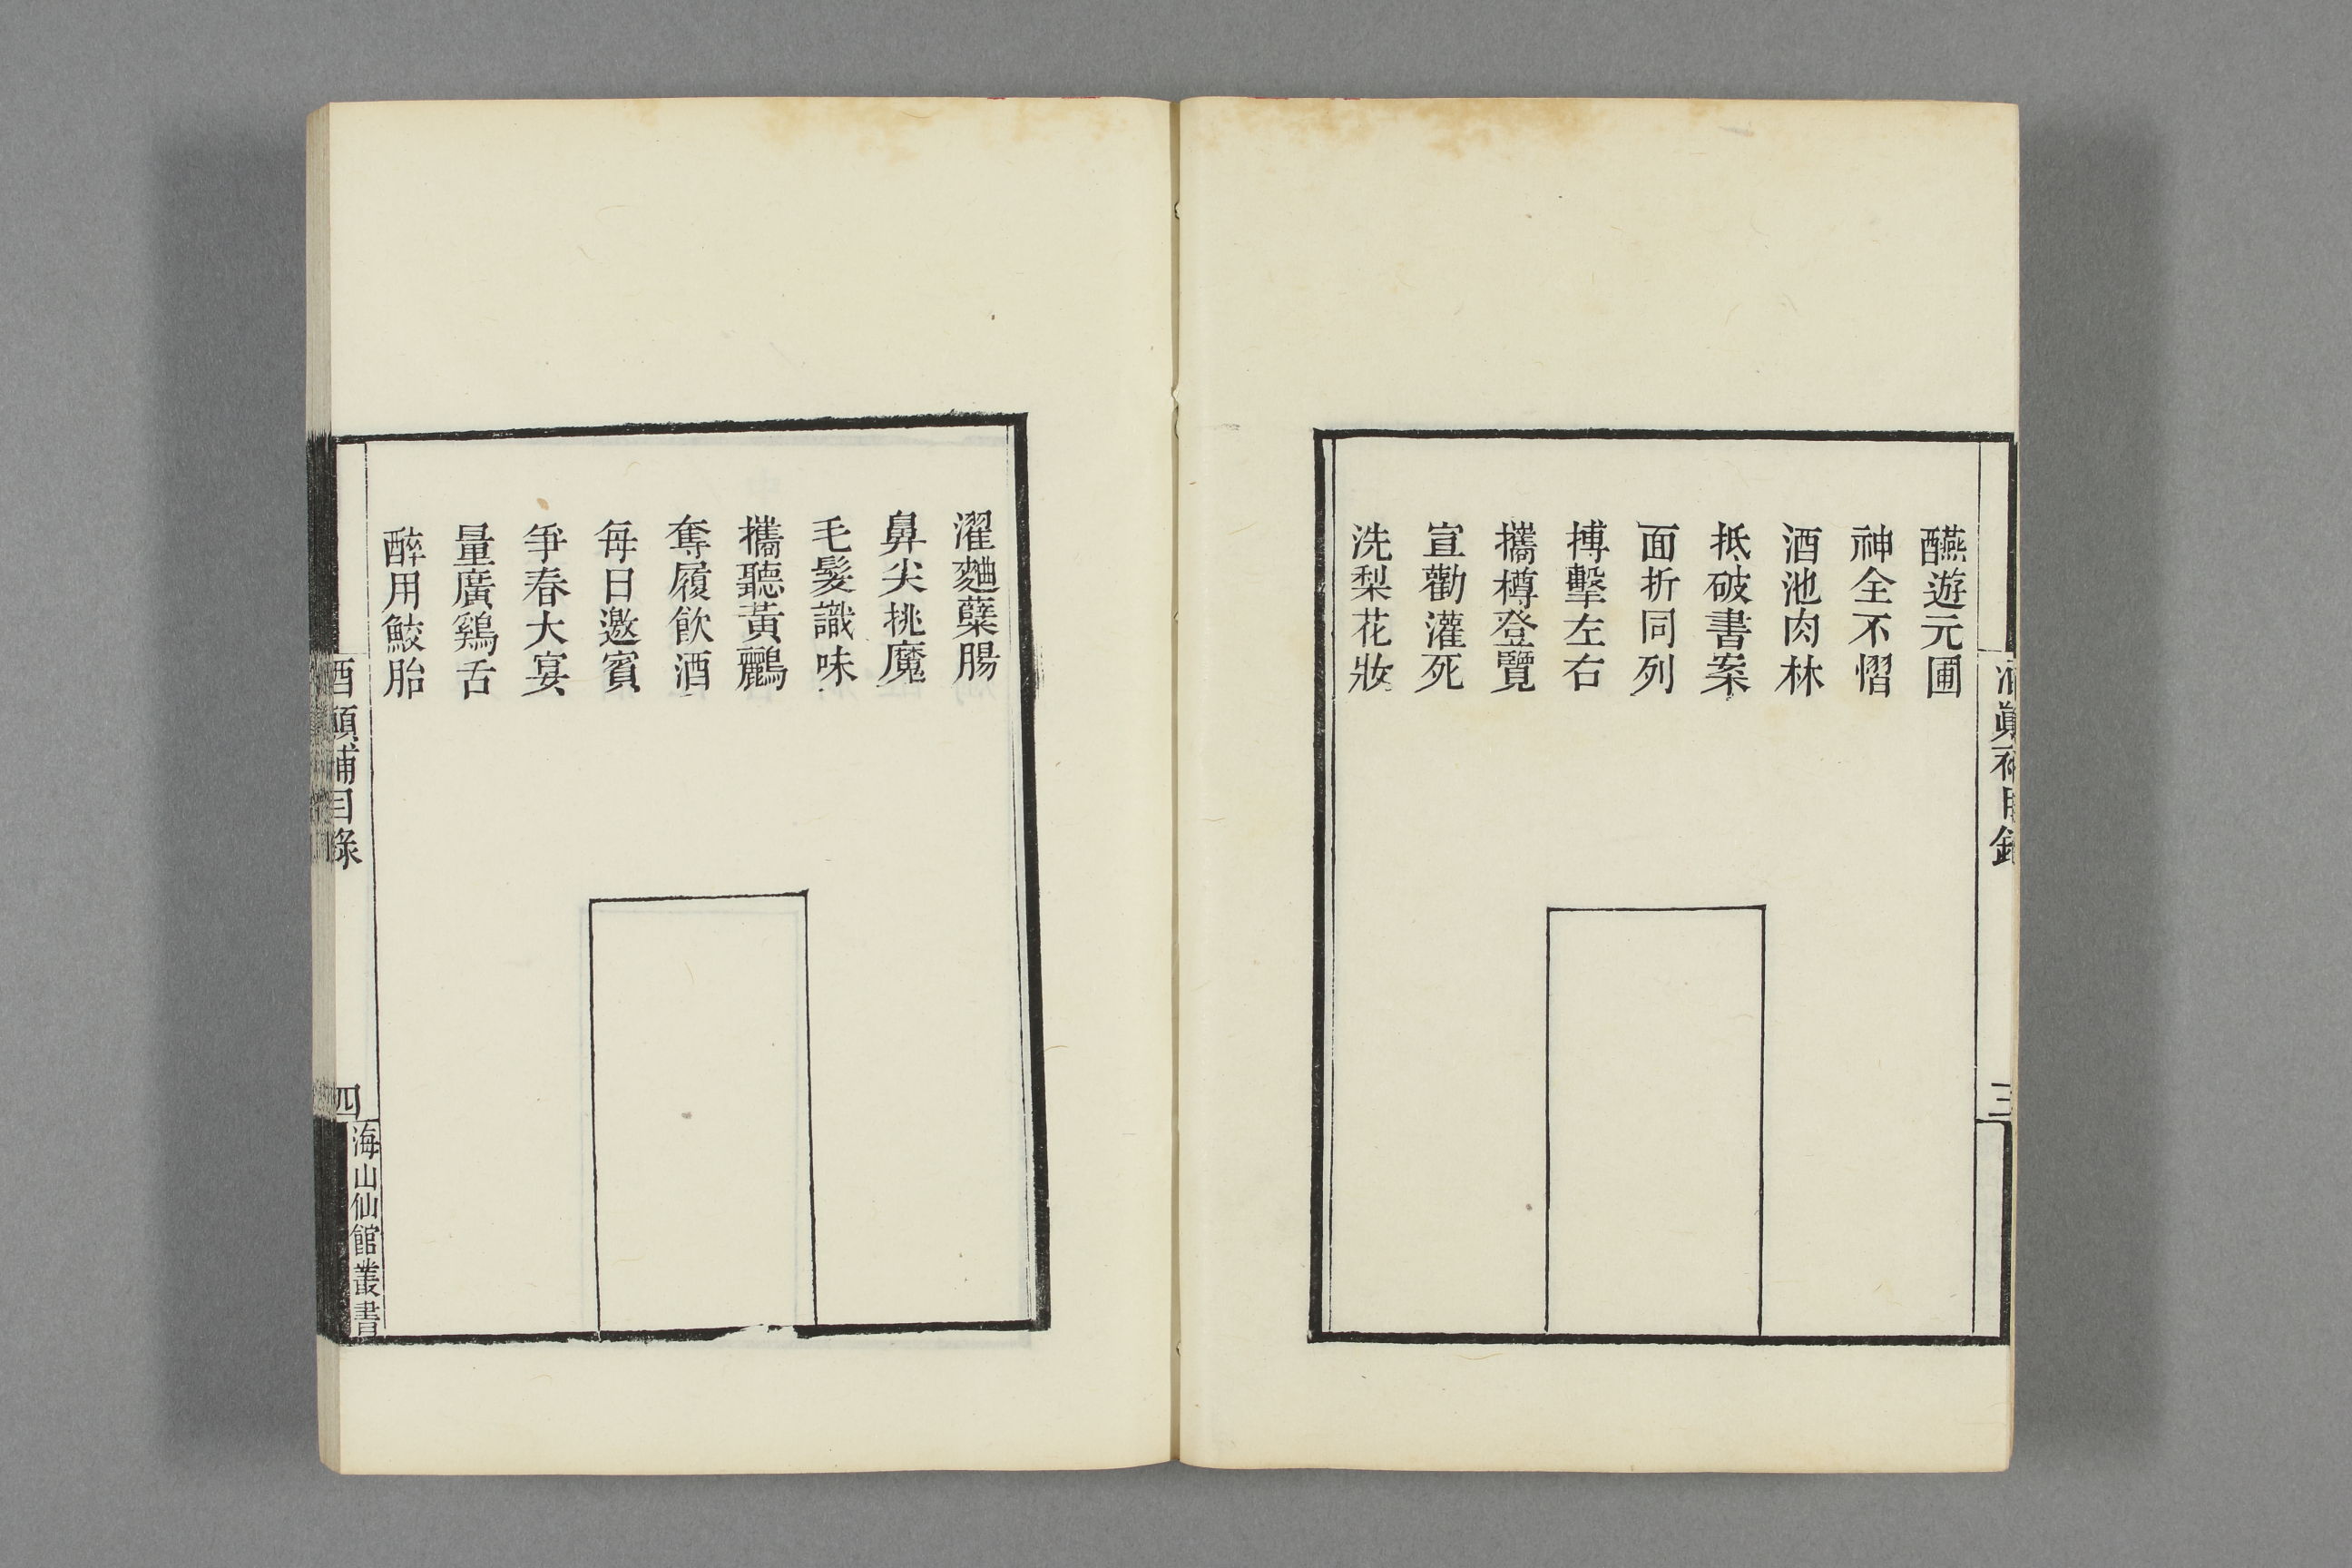 醼遊元圃
神全不慴
酒池肉林
抵破書案
面折同列
搏擊左右
攜樽登覽
宣勸灌死
洗梨花妝
酒顛補目錄
三
濯麯蘖腸
鼻尖挑魔
毛髮識味
攜聽黃鸝
奪履飲酒
每日邀賓
爭春大宴
量廣鷄舌
醉用鮫胎
酒顛補目錄
四
海山仙館叢書